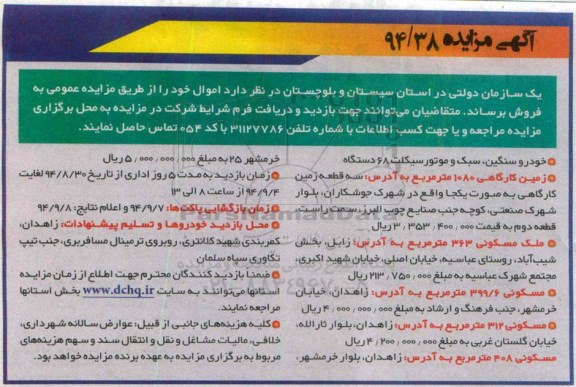 آگهی مزایده ۹۴/۳۸
یک سازمان دولتی در استان سیستان و بلوچستان در نظر دارد اموال خود را از طریق مزایده عمومی به
فروش برساند. متقاضیان می‌توانند جهت بازدید و دریافت فرم شرایط شرکت در مزایده به محل برگزاری
مزایده مراجعه و یا جهت کسب اطلاعات با شماره تلفن ۳۱۱۲۷۷۸۶ با کد ۰۵۴ تماس حاصل نمایند.
خودرو سنگین، سبک و موتورسیکلت ۶۸ دستگاه
زمین کارگاهی ۱۰۸۰ مترمربع به آدرس: سه قطعه زمین
کارگاهی به صورت یکجا واقع در شهرک جوشکاران، بلوار
شهرک صنعتی، کوچه جنب صنایع چوب البرز، سمت راست،
قطعه دوم به قیمت ۳,۳۵۳,۴۰۰,۰۰۰ ریال
ملک مسکونی ۳۶۳ مترمربع به آدرس: زابل، بخش
شیب‌آباد، روستای عباسیه، خیابان اصلی، خیابان شهید اکبری،
مجتمع شهرک عباسیه به مبلغ ۲۱۳,۷۵۰,۰۰۰ ریال
مسکونی ۳۹۹/۶ مترمربع به آدرس: زاهدان، خیابان
خرمشهر، جنب فرهنگ و ارشاد به مبلغ ۴,۰۰۰,۰۰۰,۰۰۰ ریال
مسکونی ۳۱۲ مترمربع به آدرس: زاهدان، بلوار ثارالله،
خیابان گلستان غربی به مبلغ ۴,۲۰۰,۰۰۰,۰۰۰ ریال
مسکونی ۴۰۸ مترمربع به آدرس: زاهدان، بلوار خرمشهر،
خرمشهر ۲۵ به مبلغ ۵,۰۰۰,۰۰۰,۰۰۰ ریال
زمان بازدید به مدت ۵ روز اداری از تاریخ ۹۴/۸/۳۰ لغایت
۹۴/۹/۴ از ساعت ۸ الی ۱۳
زمان بازگشایی پاکت‌ها: ۹۴/۹/۷ و اعلام نتایج: ۹۴/۹/۸
محل بازدید خودروها و تسلیم پیشنهادات: زاهدان،
کمربندی شهید کلانتری، روبروی ترمینال مسافربری، جنب تیپ
تکاوری سپاه سلمان
ضمنا بازدید کنندگان محترم جهت اطلاع از زمان مزایده
استانها می‌توانند به سایت www.dchq.ir بخش استانها
مراجعه نمایند.
کلیه هزینه‌های جانبی از قبیل: عوارض سالانه شهرداری،
خلافی، مالیات مشاغل و نقل و انتقال سند و سهم هزینه‌های
مربوط به برگزاری مزایده به عهده برنده مزایده خواهد بود.